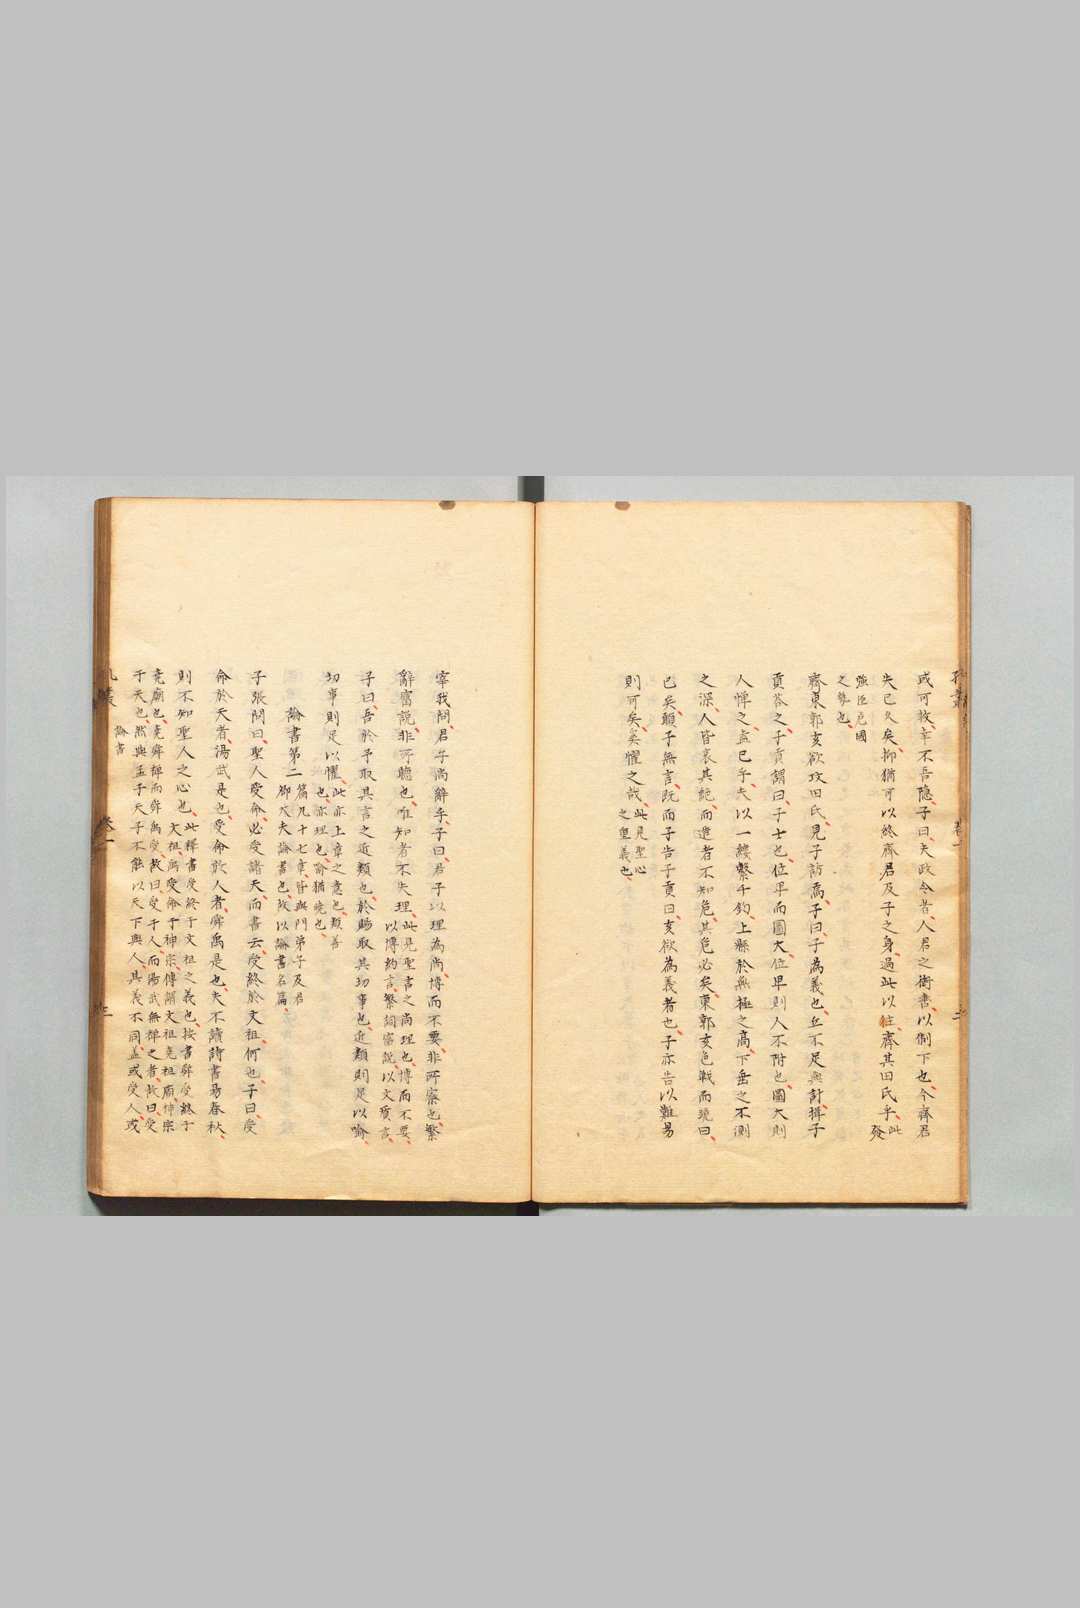 或可救、幸不吾隱、子曰、夫政令者、人君之銜轡、以制下也、今齊君
失已久矣、抑猶可以終齊君及子之身、過此以往、齊其田氏乎、此
發
強臣危國
之勢也、
齊東郭亥欲攻田氏、見子訪焉、子曰、子為義也、丘不足與計、揖子
貢荅之、子貢謂曰、子士也、位卑而圖大、位卑則人不附也、圖大則
人憚之、盍已乎、夫以一縷繫千鈞、上縣於無極之高、下垂之不測
之深、人皆哀其絶、而造者不知危、其危必矣、東郭亥色戰而跪曰、
已矣、願子無言、既而子告子貢曰、亥欲為義者也、子亦告以難易
則可矣、奚懼之哉、此見聖心
之聖義也、
宰我問、君子尚辭乎、子曰、君子以理為尚、博而不要、非所察也、繁
辭富說、非所聽也、唯知者不失理、此見聖言之尚理也、博而不要、
以博約言、繁詞富說、以文質言、
子曰、吾於予取其言之近類也、於賜取其切事也、近類則足以喻、
切事則足以懼、此亦上章之意也、類善
也、亦理也、喻猶曉也、
論書第二 篇凡十七章、皆與門弟子及君
卿大夫論書也、故以論書名篇、
子張問曰、聖人受命、必受諸天、而書云、受終於文祖、何也、子曰、受
命於天者、湯武是也、受命於人者、舜禹是也、夫不讀詩書易春秋、
則不知聖人之心也、此釋書受終于文祖之義也、按書舜受終于
文祖、禹受命于神宗、傳謂文祖堯祖廟、神宗
堯廟也、堯舜禪而舜禹受、故曰、受于人、而湯武無禪之者、故曰、受
于天也、然與孟子天子不能以天下與人、其義不同、蓋或受人、或
論書
卷一